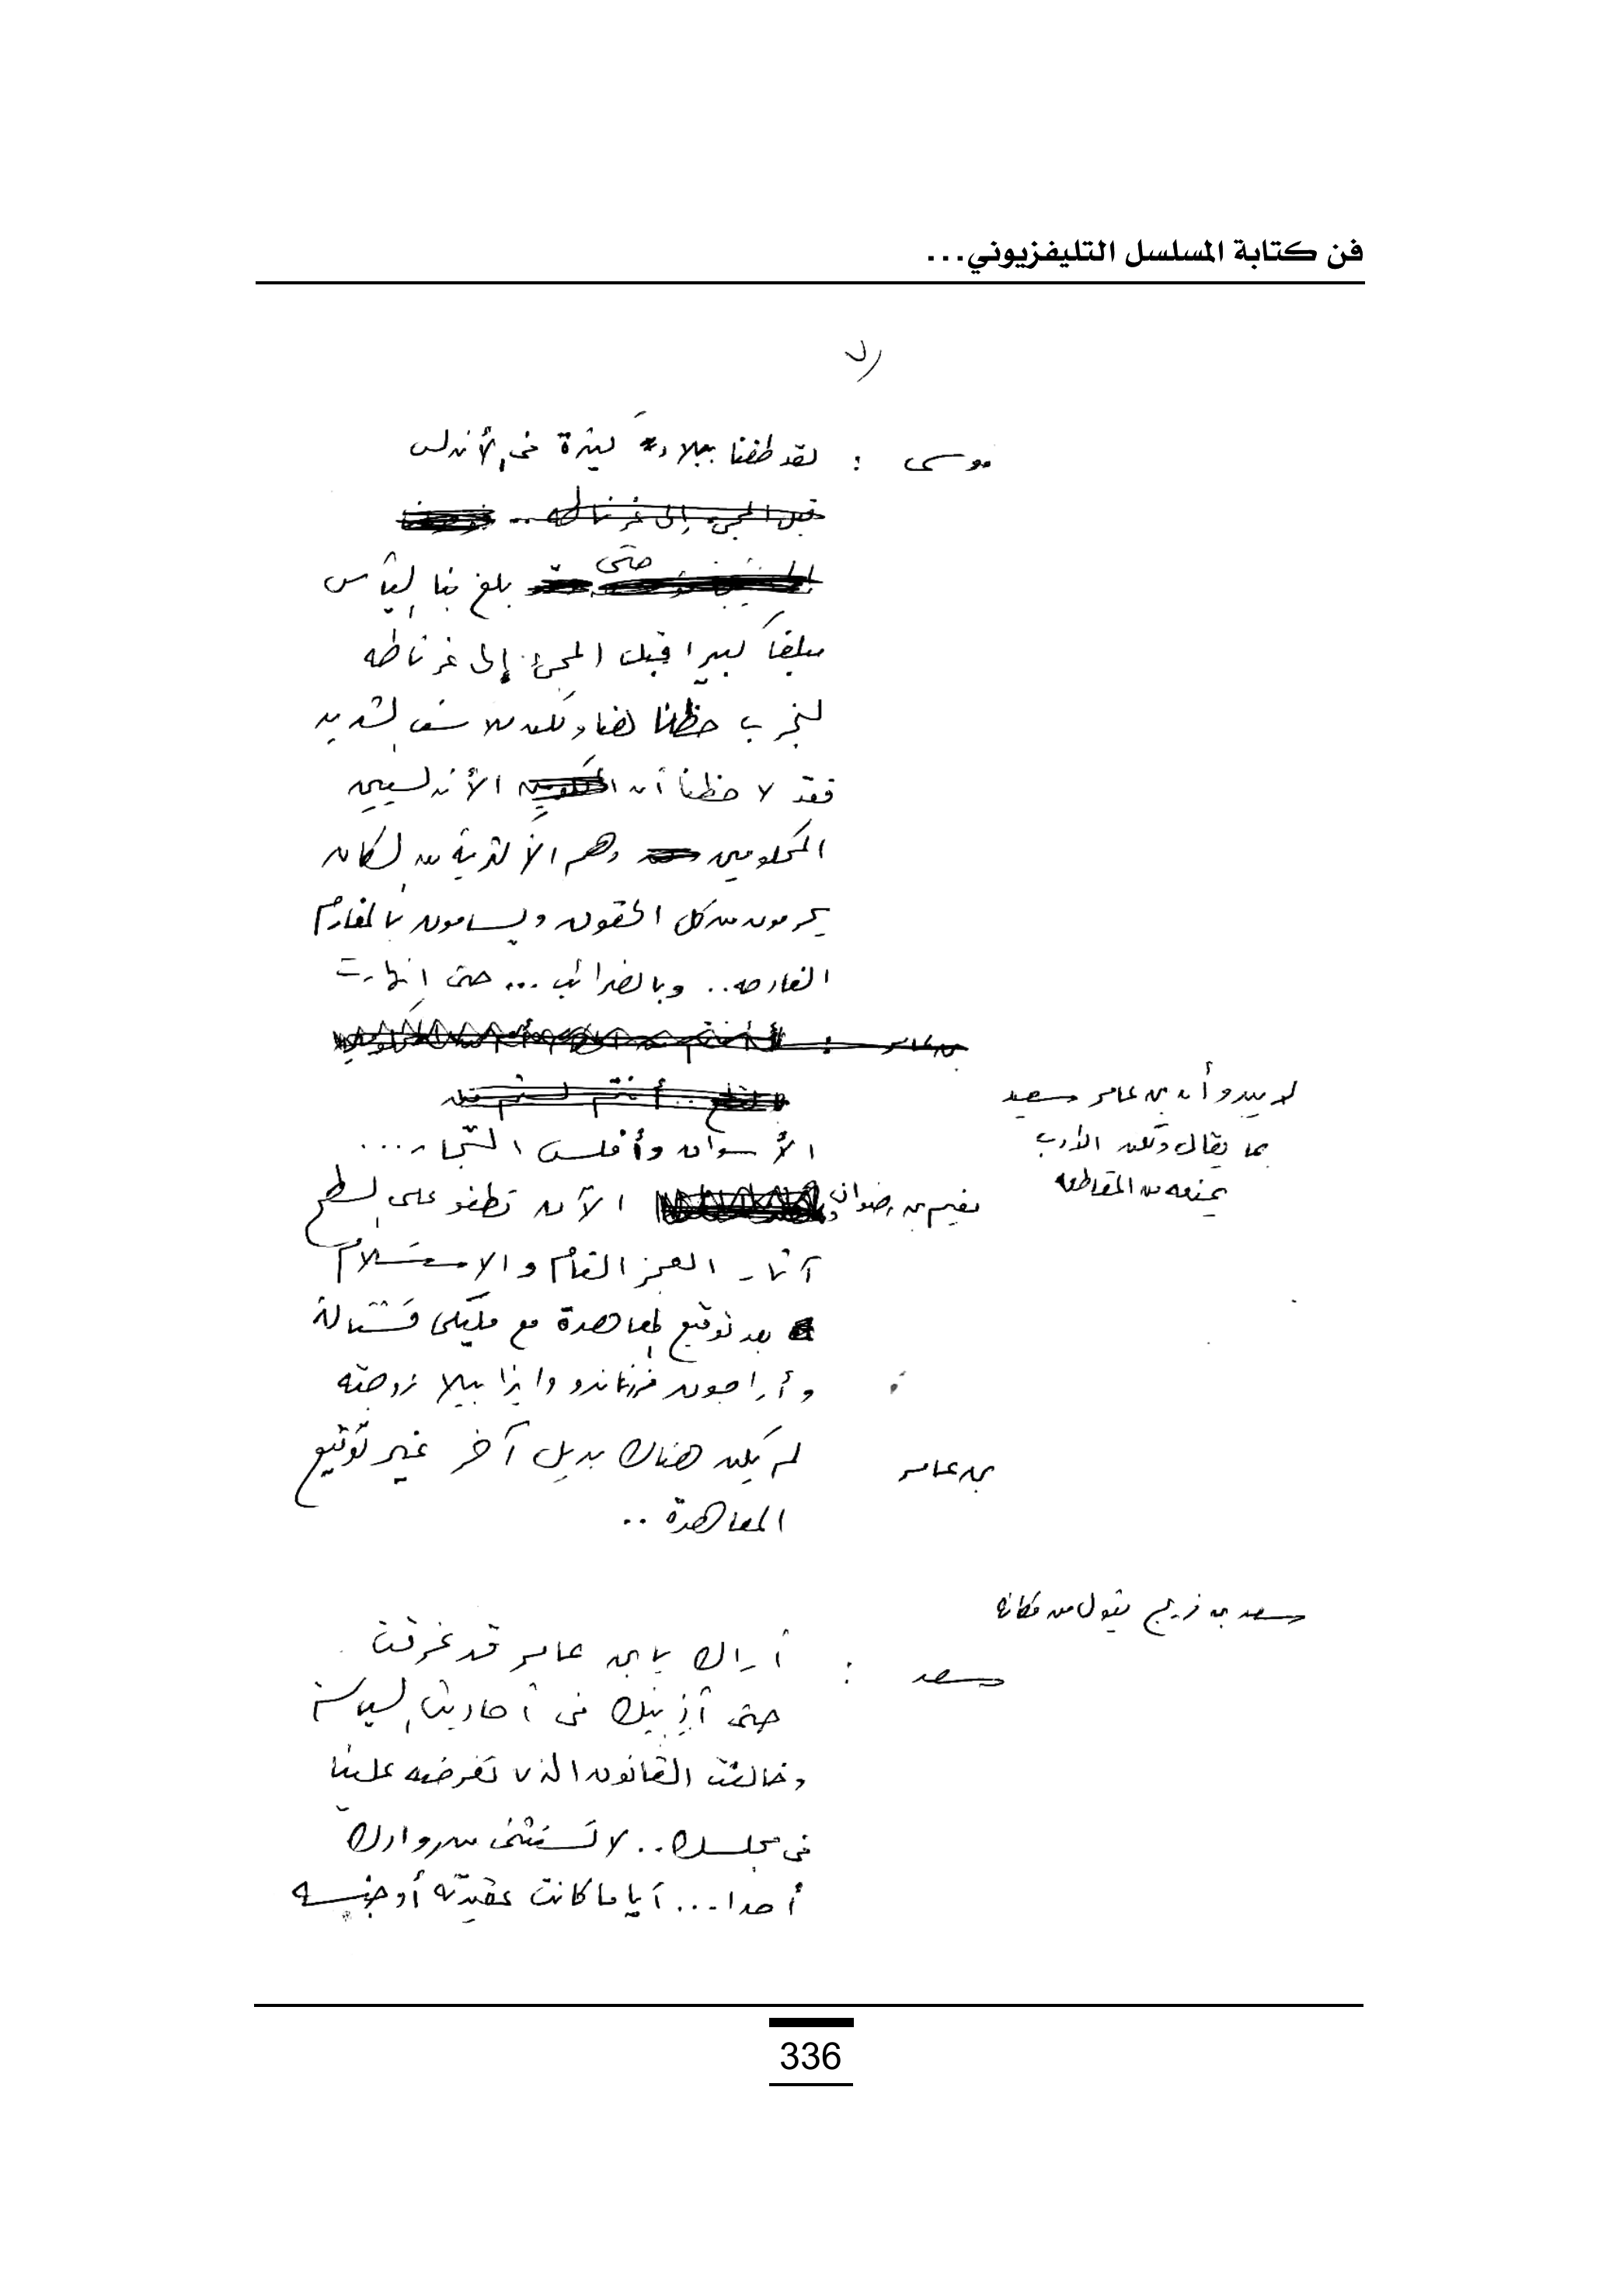 فن كتابة المسلسل التليفزيوني...
موسى : لقد طفنا ببلاد كثيرة فى الأندلس
قبل المجئ إلى غرناطه ..
حتى
بلغ بنا اليأس
مبلغاً كبيرا قبل المجئ إلى غرناطه
لنجرب حظنا هنا ولكن للاسف الشديد
فقد لاحظنا أن الأندلسيين
المحكومين وهم الأكثرية من السكان
يحرمون من كل الحقوق ويسامون بالمغارم
الفادحه.. وبالضرائب ... حتى انهارت
بن عامر :
.. أنتم لستم
لا يبدو أن بن عامر سعيد
بما يقال ولكن الأدب
يمنعه من المقاطعه
الأسواق وأفلس التجار ...
نعيم بن رضوان الآن تطفو على السطح
آثار العجز التام والاستسلام
بعد توقيع المعاهدة مع ملكى قشتالة
وأراجون فرناندو وايزابيلا زوجته
بن عامر لم يكن هناك بديل آخر غير توقيع
المعاهدة ..
سعد بن فريج يقول من مكانه
سعد : أراك يا بن عامر قد غرقت
حتى أذنيك فى أحاديث السياسة
وخالفت القانون الذى تفرضه علينا
فى مجلسك .. لا تستثنى من روادك
أحدا ... أيا ما كانت عقيدته أو جنسه
336